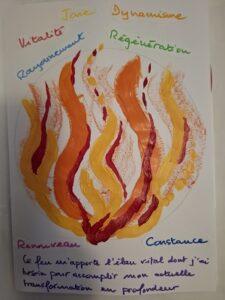 Joie Dynamisme
Vitalité
Régénération
Rayonnement
Renouveau Constance
Ce feu m'apporte l'élan vital dont j'ai
besoin pour accomplir mon actuelle
transformation en profondeur